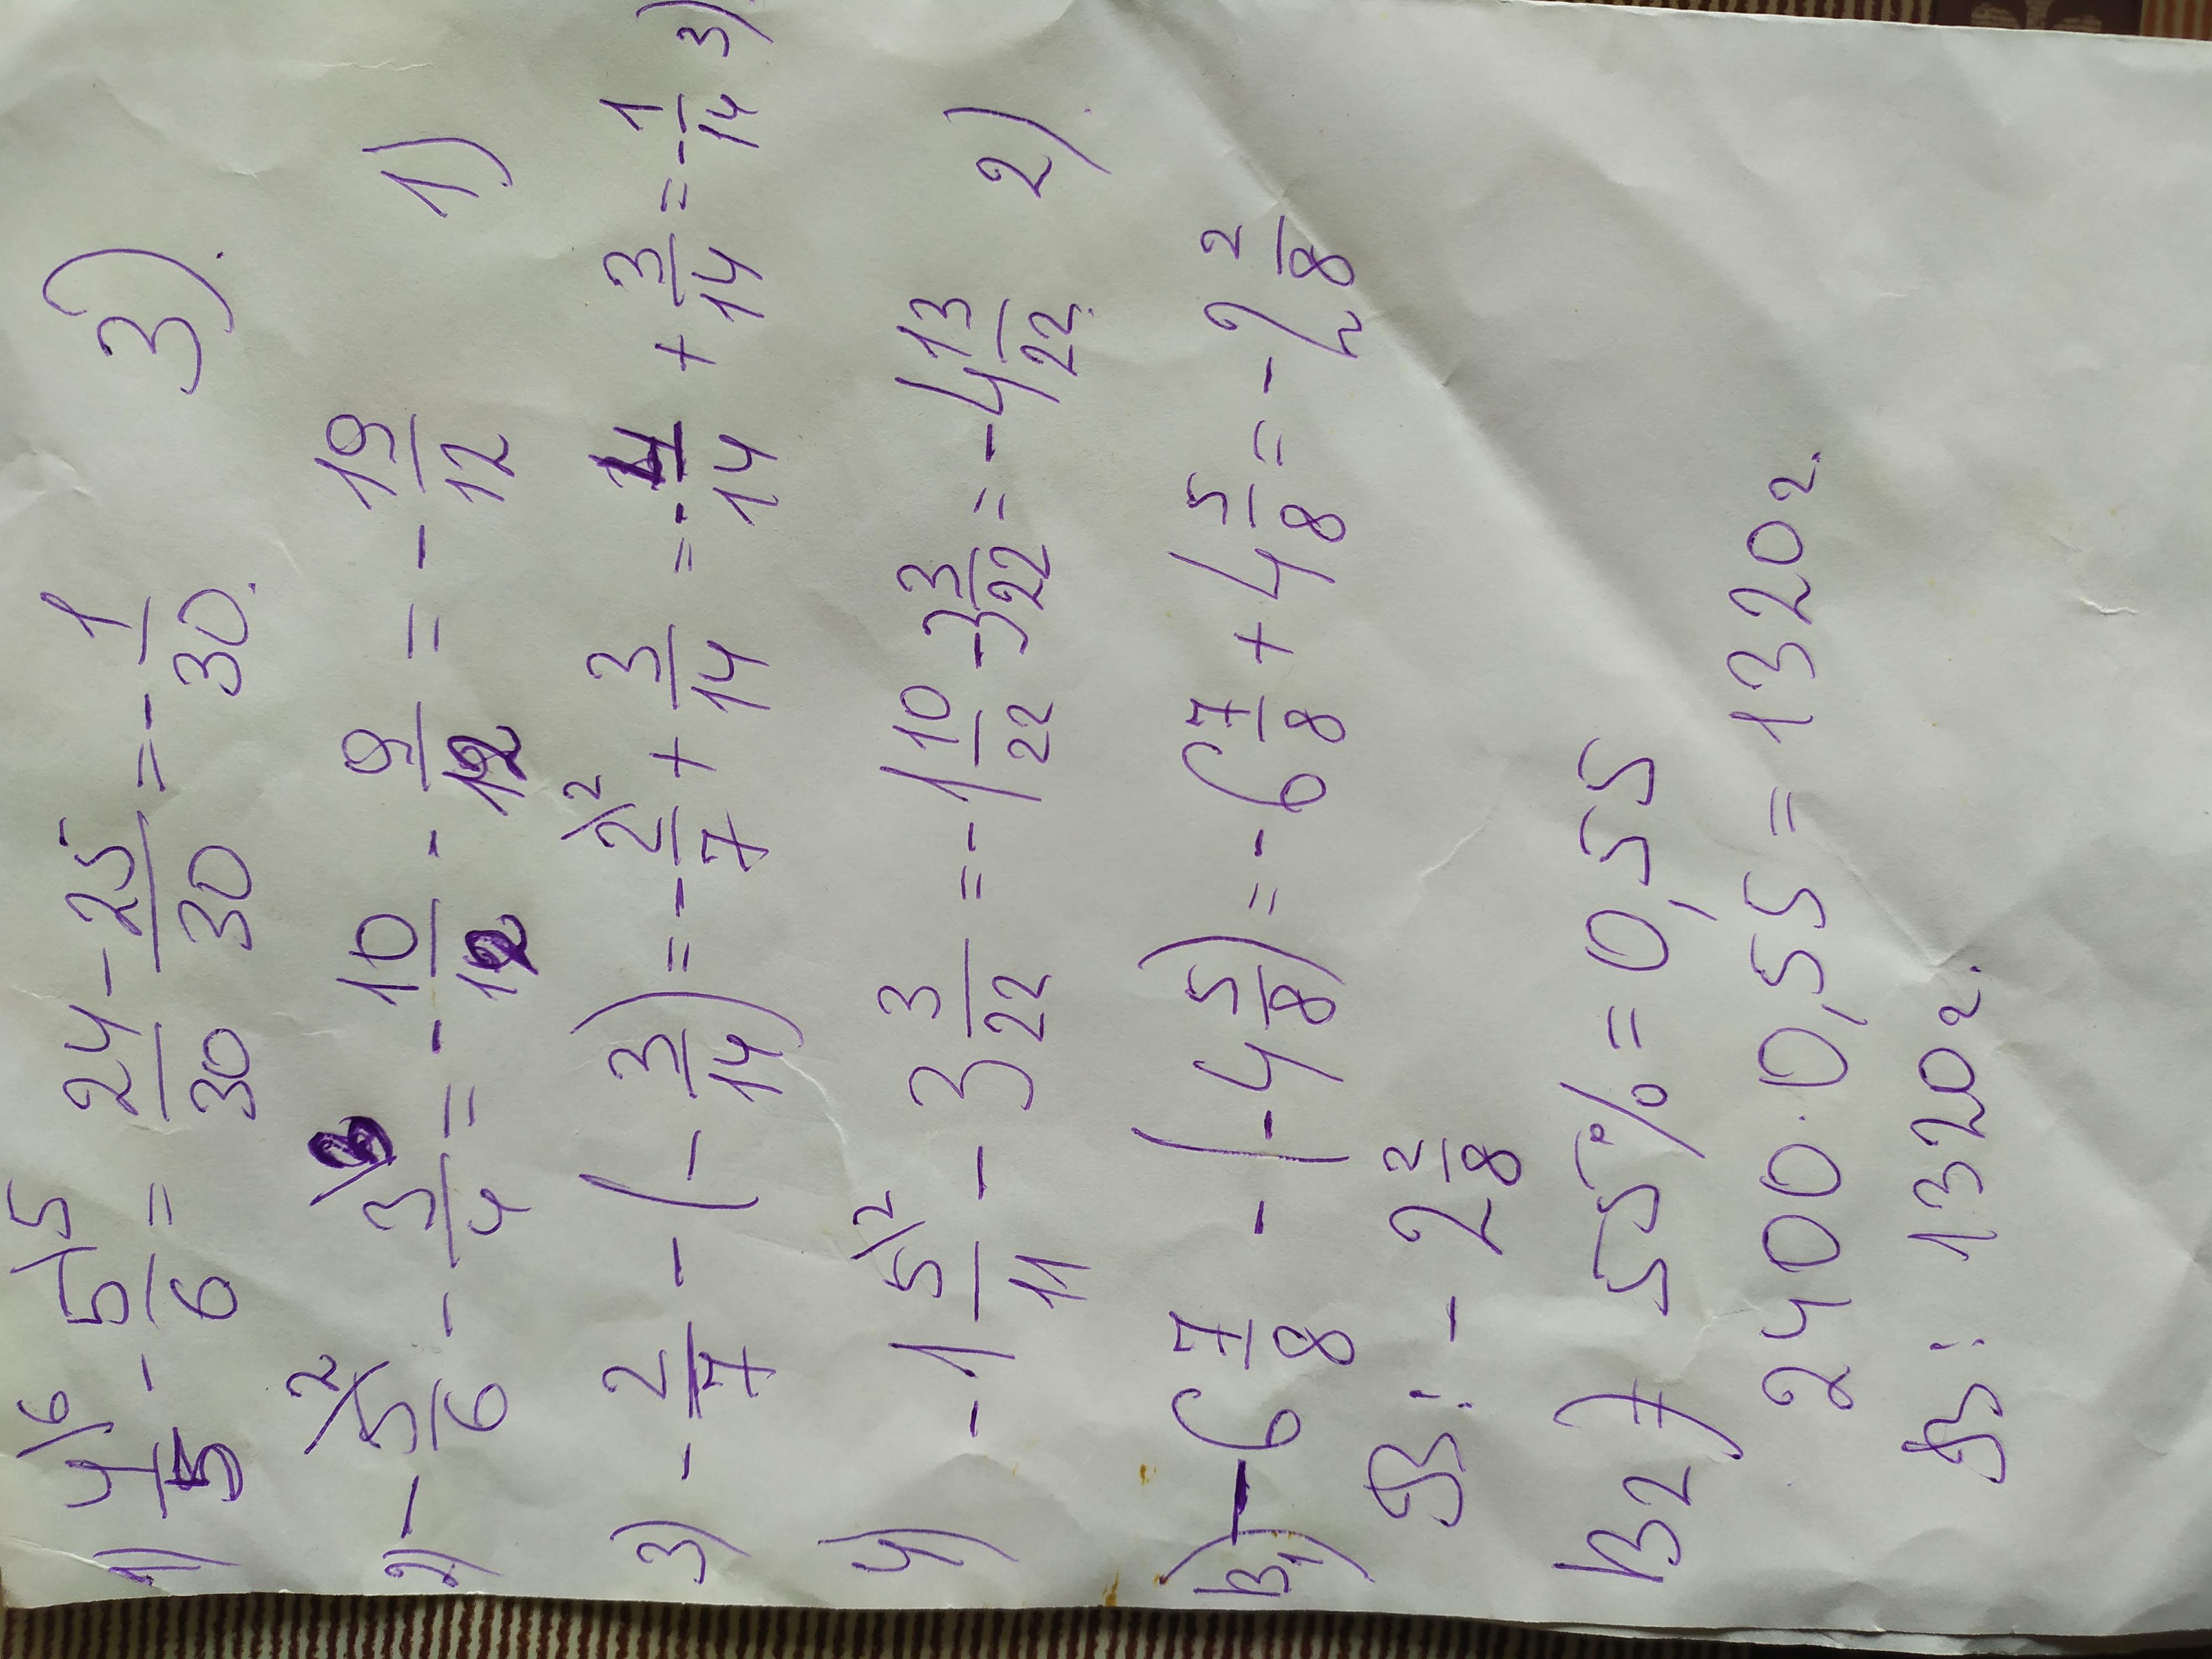 1) 4\6/5 - 5\5/6 = 24/30 - 25/30 = - 1/30. 3).
2) - 5\2/6 - 3\3/4 = - 10/12 - 9/12 = - 19/12 1)
3) - 2/7 - (- 3/14) = - 2\2/7 + 3/14 = - 4/14 + 3/14 = - 1/14 3).
4) - 1 5\2/11 - 3 3/22 = - 1 10/22 - 3 3/22 = - 4 13/22. 2).
B1) - 6 7/8 - (- 4 5/8) = - 6 7/8 + 4 5/8 = - 2 2/8
В: - 2 2/8
B2) 55% = 0,55
2400 · 0,55 = 1320г.
В: 1320г.